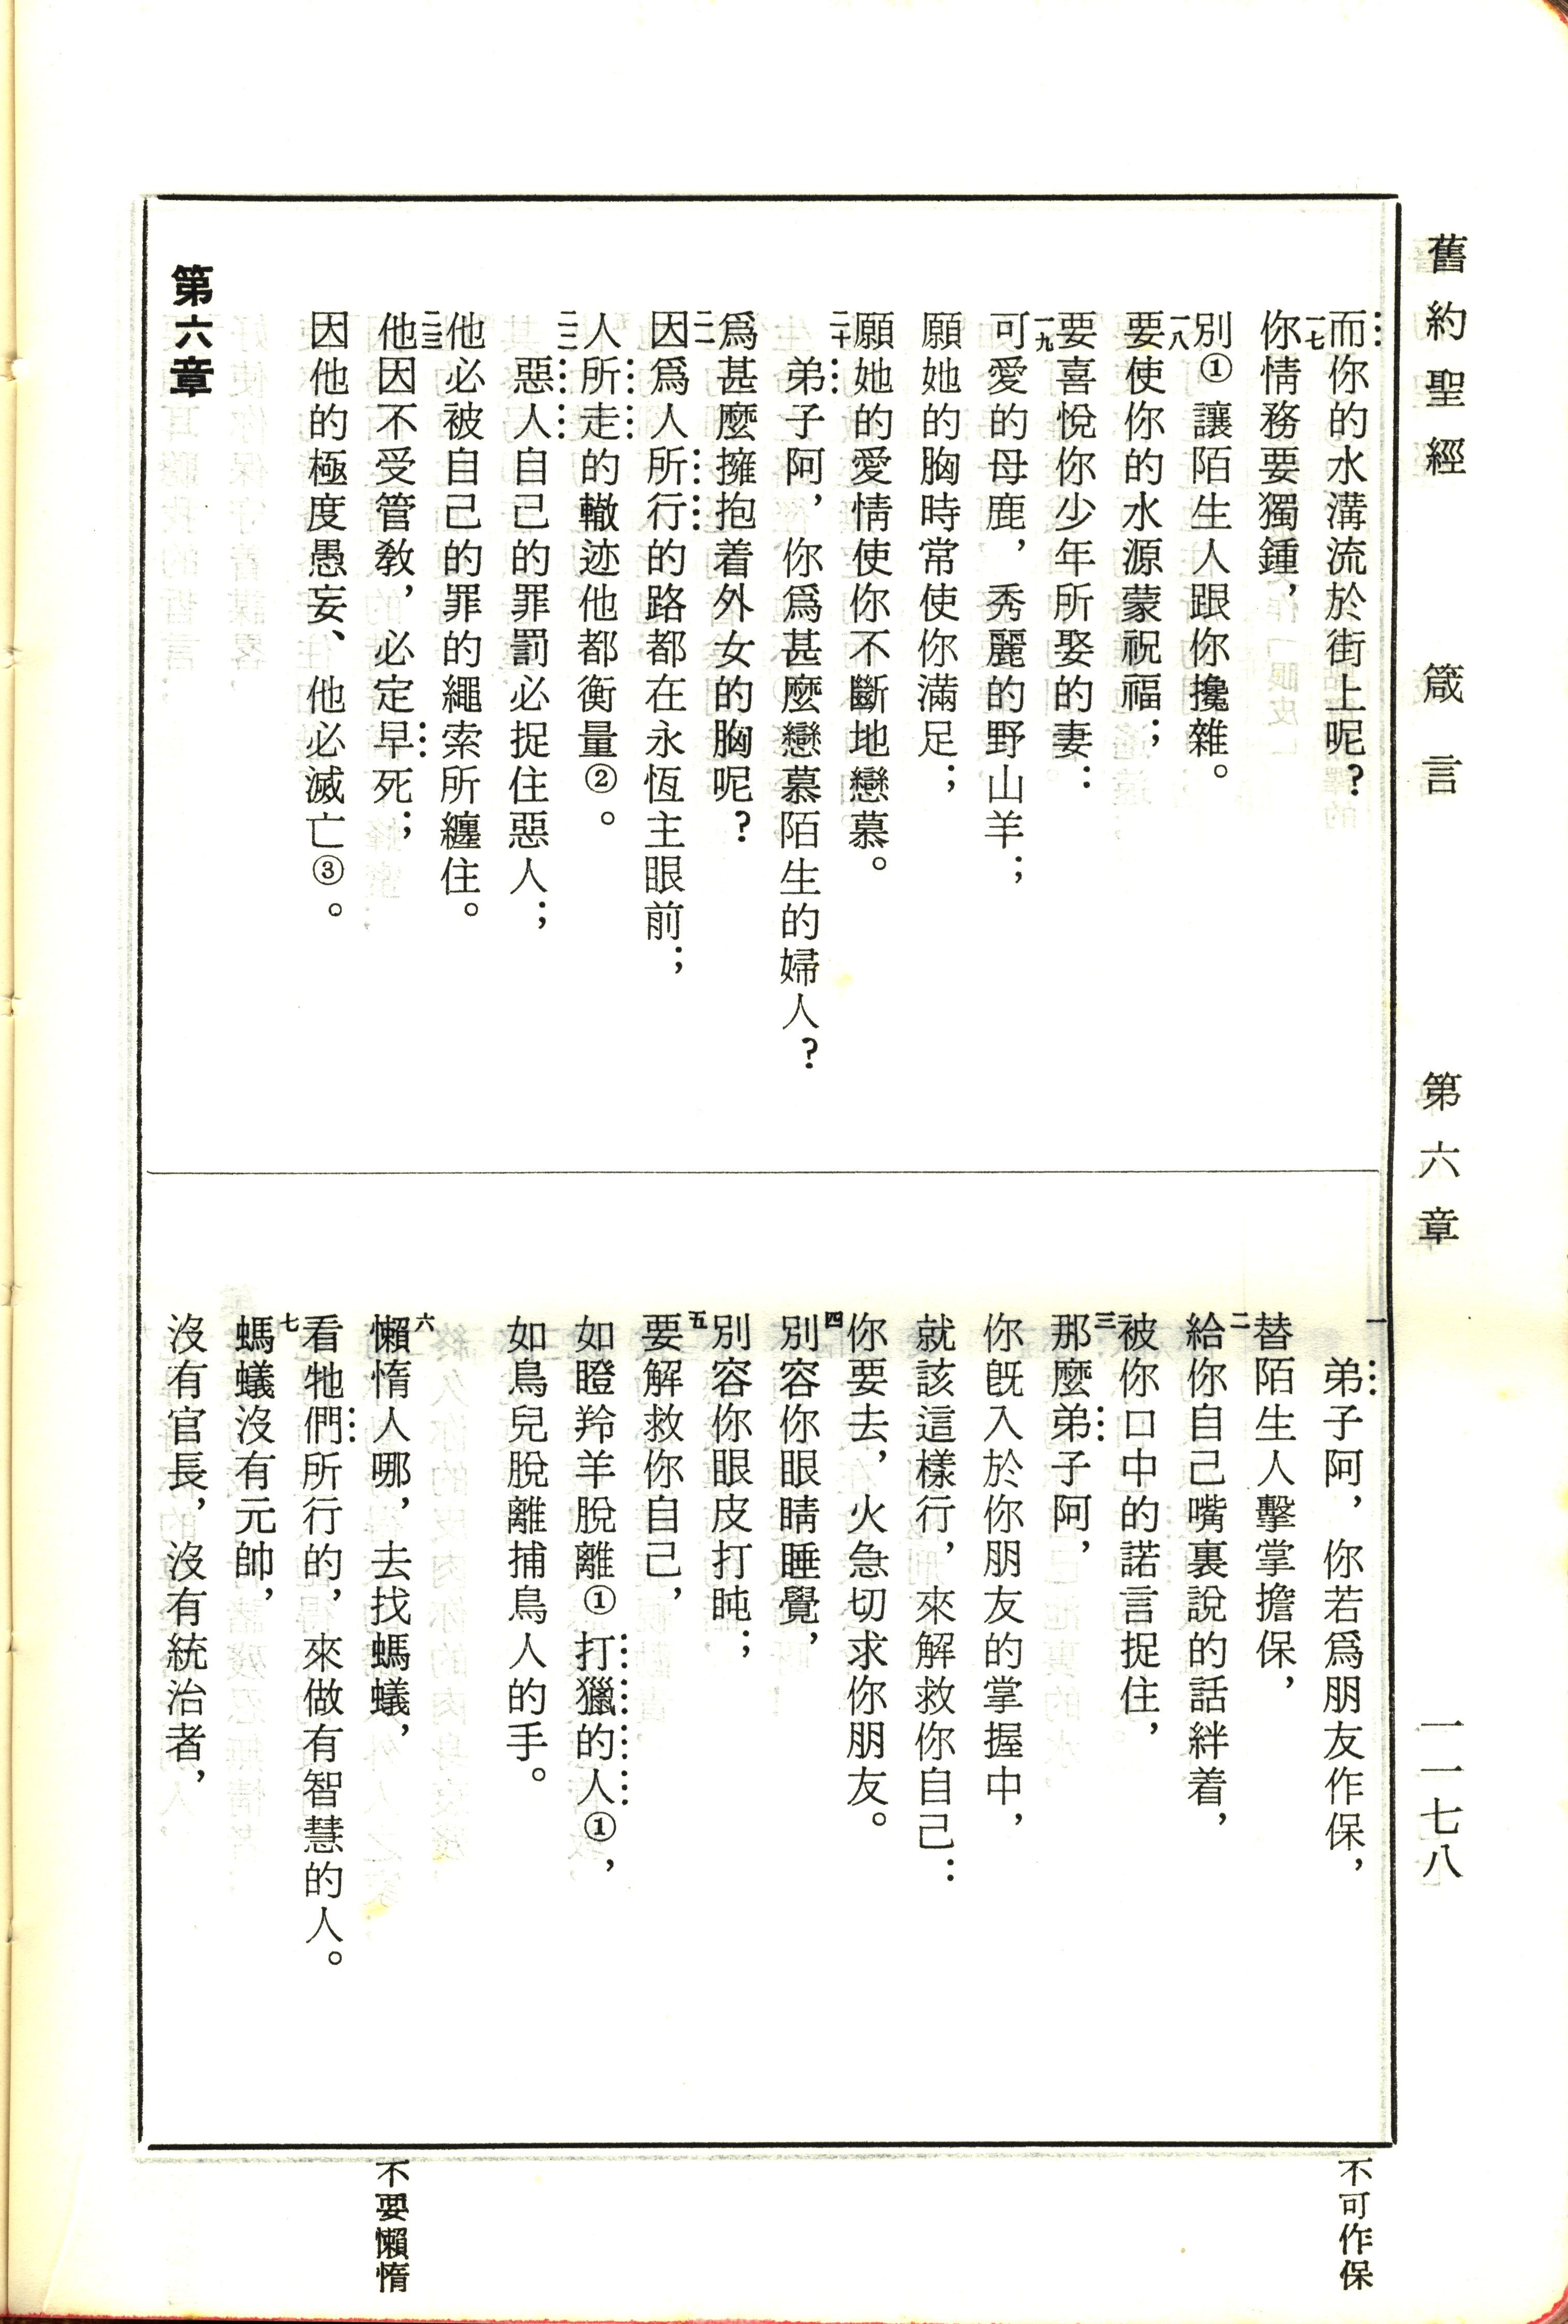 舊約聖經　箴言　第六章　一一七八
而你的水溝流於街上呢？
一七你情務要獨鍾，
別①讓陌生人跟你攙雜。
一八要使你的水源蒙祝福；
要喜悅你少年所娶的妻：
一九可愛的母鹿，秀麗的野山羊；
願她的胸時常使你滿足；
願她的愛情使你不斷地戀慕。
二十弟子阿，你爲甚麼戀慕陌生的婦人？
爲甚麼擁抱着外女的胸呢？
二一因爲人所行的路都在永恆主眼前；
人所走的轍迹他都衡量②。
二二惡人自己的罪罰必捉住惡人；
他必被自己的罪的繩索所纏住。
二三他因不受管教，必定早死；
因他的極度愚妄、他必滅亡③。
第六章
一弟子阿，你若爲朋友作保，
替陌生人擊掌擔保，
二給你自己嘴裏說的話絆着，
被你口中的諾言捉住，
三那麼弟子阿，
你既入於你朋友的掌握中，
就該這樣行，來解救你自己：
你要去，火急切求你朋友。
四別容你眼睛睡覺，
別容你眼皮打盹；
五要解救你自己，
如瞪羚羊脫離①打獵的人①，
如鳥兒脫離捕鳥人的手。
六懶惰人哪，去找螞蟻，
看牠們所行的，來做有智慧的人。
七螞蟻沒有元帥，
沒有官長，沒有統治者，
不可作保
不要懶惰